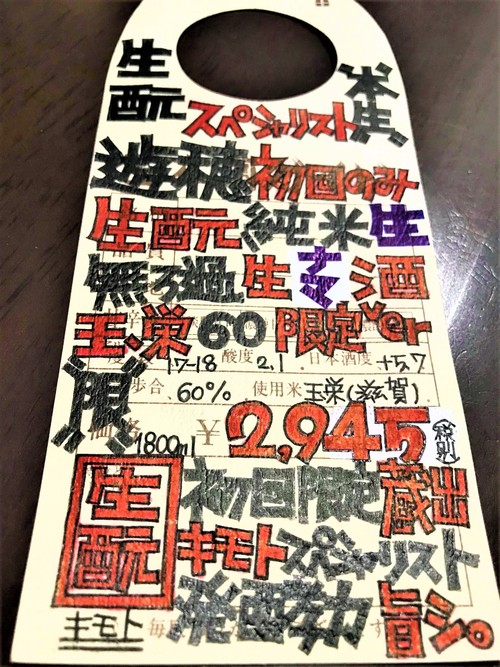 生酛 スペシャリスト 本生
遊穂 初回のみ
生酛元 純米生
無ろ過生ナマ酒
玉栄60限定Ver
限 17-18 酸度 2.1 日本酒度 +5.7
歩合 60% 使用米 玉栄(滋賀)
1800ml ￥2,945 (税別)
生酛 初回限定蔵出
キモトスペシャリスト
キモト 発酵力 旨シ。